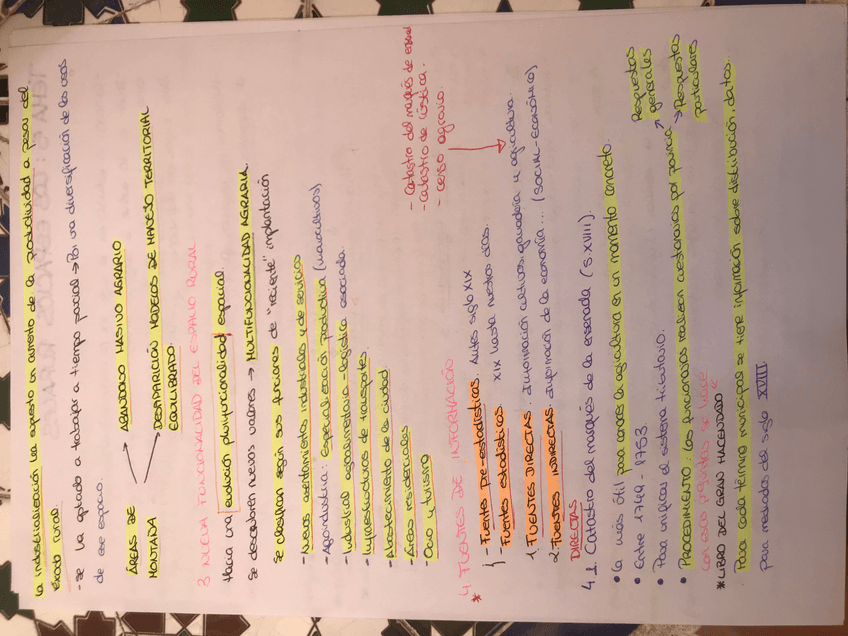 la industrialización ha supuesto un aumento de la productividad a pesar del
éxodo rural.
- se ha optado a trabajar a tiempo parcial → Por una diversificación de los usos
de ese espacio.
ÁREAS DE
MONTAÑA
ABANDONO MASIVO AGRARIO
DESAPARICIÓN MODELOS DE MANEJO TERRITORIAL
EQUILIBRADO.
3 NUEVA FUNCIONALIDAD DEL ESPACIO RURAL
Hacia una evolución plurifuncionalidad espacial
se descubren nuevos valores → MULTIFUNCIONALIDAD AGRARIA.
se clasifican según sus funciones de "reciente" implantación
- Nuevos asentamientos industriales y de servicios
- Agroindustria: Especialización productiva
- Industrial agroalimentaria - logística asociada.
- Infraestructuras de transportes
- Abastecimiento de la ciudad
- Áreas residenciales
- Ocio y turismo
- Catastro del marqués de
- Catastro de rústica.
- censo agrario.
* 4 FUENTES DE INFORMACIÓN
- Fuentes Pre-estadísticas. Antes siglo XIX
- Fuentes estadísticas. XIX hasta nuestros días.
1. FUENTES DIRECTAS. Información cultivos, ganadería y agricultura.
2. FUENTES INDIRECTAS. Información de la economía... (SOCIAL-ECONÓMICO)
DIRECTAS
4.1 Catastro del marqués de la ensenada (S XVIII).
• La más útil para conocer la agricultura en un momento concreto.
• Entre 1749 - 1753.
• Para unificar el sistema tributario.
• PROCEDIMIENTO: los funcionarios realizan cuestionarios por provincia
→ Respuestas generales
→ Respuestas particulares
con esas preguntas se hace
* LIBRO DEL GRAN HACENDADO
Para cada término municipal se tiene información sobre distribución, datos...
para mediados del siglo XVIII.